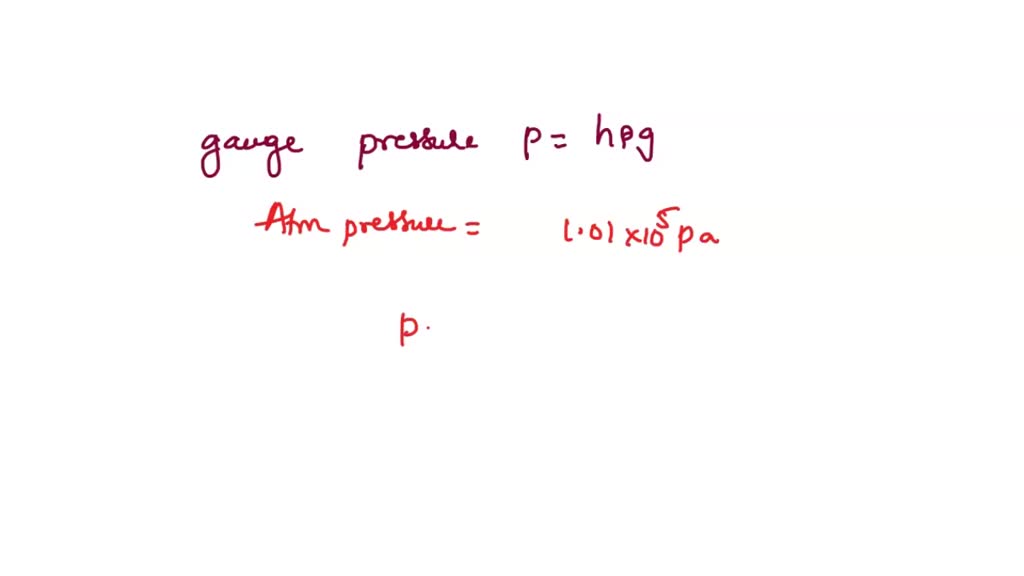 gauge pressure p = hρg
Atm pressure = 1.01 × 10⁵ pa
p.